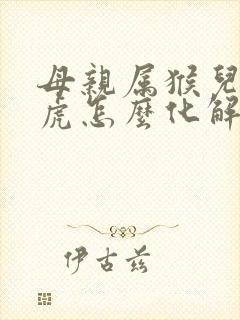 母親属猴兒
虎怎麼化解
伊古兹